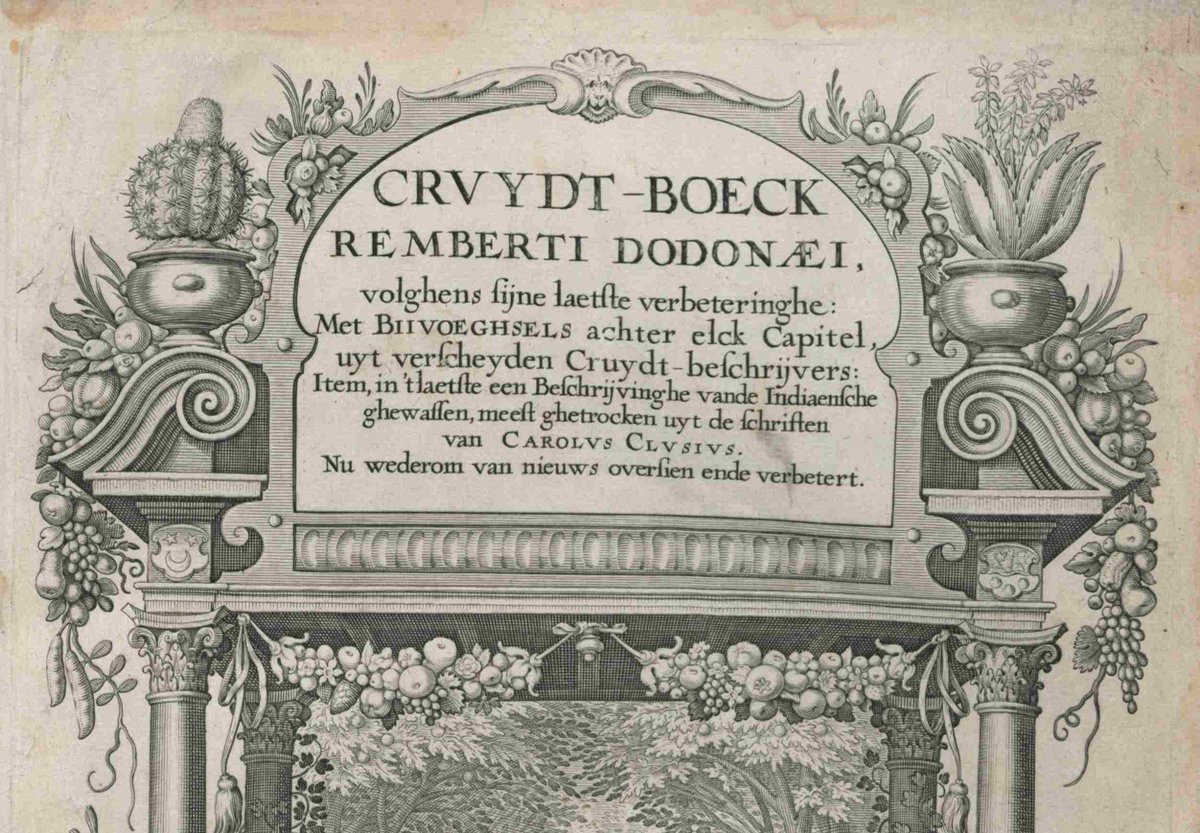 CRVYDT-BOECK
REMBERTI DODONÆI,
volghens ſijne laetſte verbeteringhe:
Met BIIVOEGHSELS achter elck Capitel,
uyt verſcheyden Cruydt-beſchrijvers:
Item, in 't laetſte een Beſchrijvinghe vande Indiaenſche
ghewaſſen, meeſt ghetrocken uyt de ſchriften
van CAROLVS CLVSIVS.
Nu wederom van nieuws overſien ende verbetert.